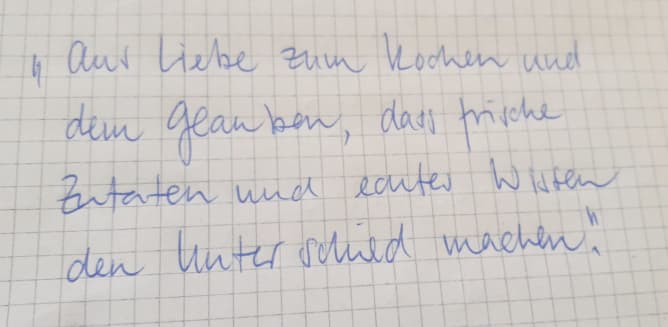 „Aus Liebe zum Kochen und
dem Glauben, dass frische
Zutaten und echtes Wissen
den Unterschied machen."